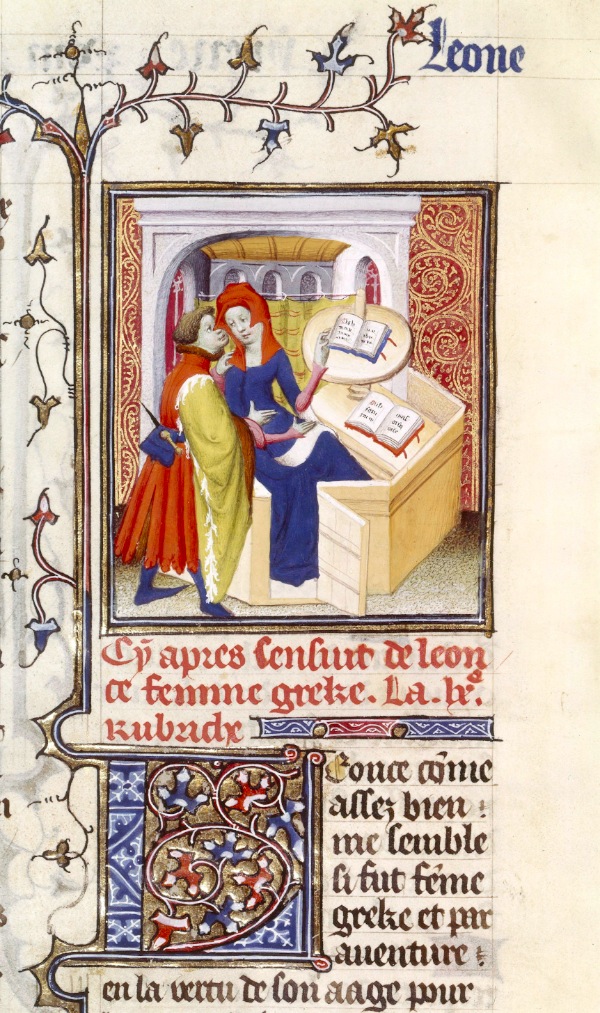 Leone
Cy apres sensuit de leon
ce femme greke. La .lx.e
rubriche
Leonce cōme
assez bien
me semble
si fut fēme
greke et par
auenture
en la vertu de son aage pour